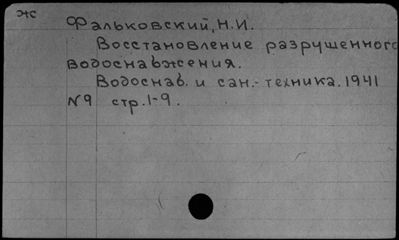 жс
Фальковский, Н.И.
Восстановление разрушенного
водоснабжения.
Водоснаб. и сан.-техника. 1941
№9 стр. 1-9.